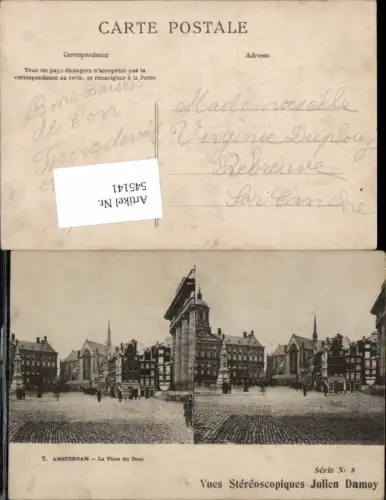 CARTE POSTALE
Correspondance
Adresse
Tous les pays étrangers n'acceptent pas la
correspondance au recto, se renseigner à la Poste
Bons Baisers
de ton
Mademoiselle
Virginie Duplouy
Rebreuve
Sur Canche
Artikel Nr.
545141
7. AMSTERDAM — La Place du Dam
Série No 8
Vues Stéréoscopiques Julien Damoy